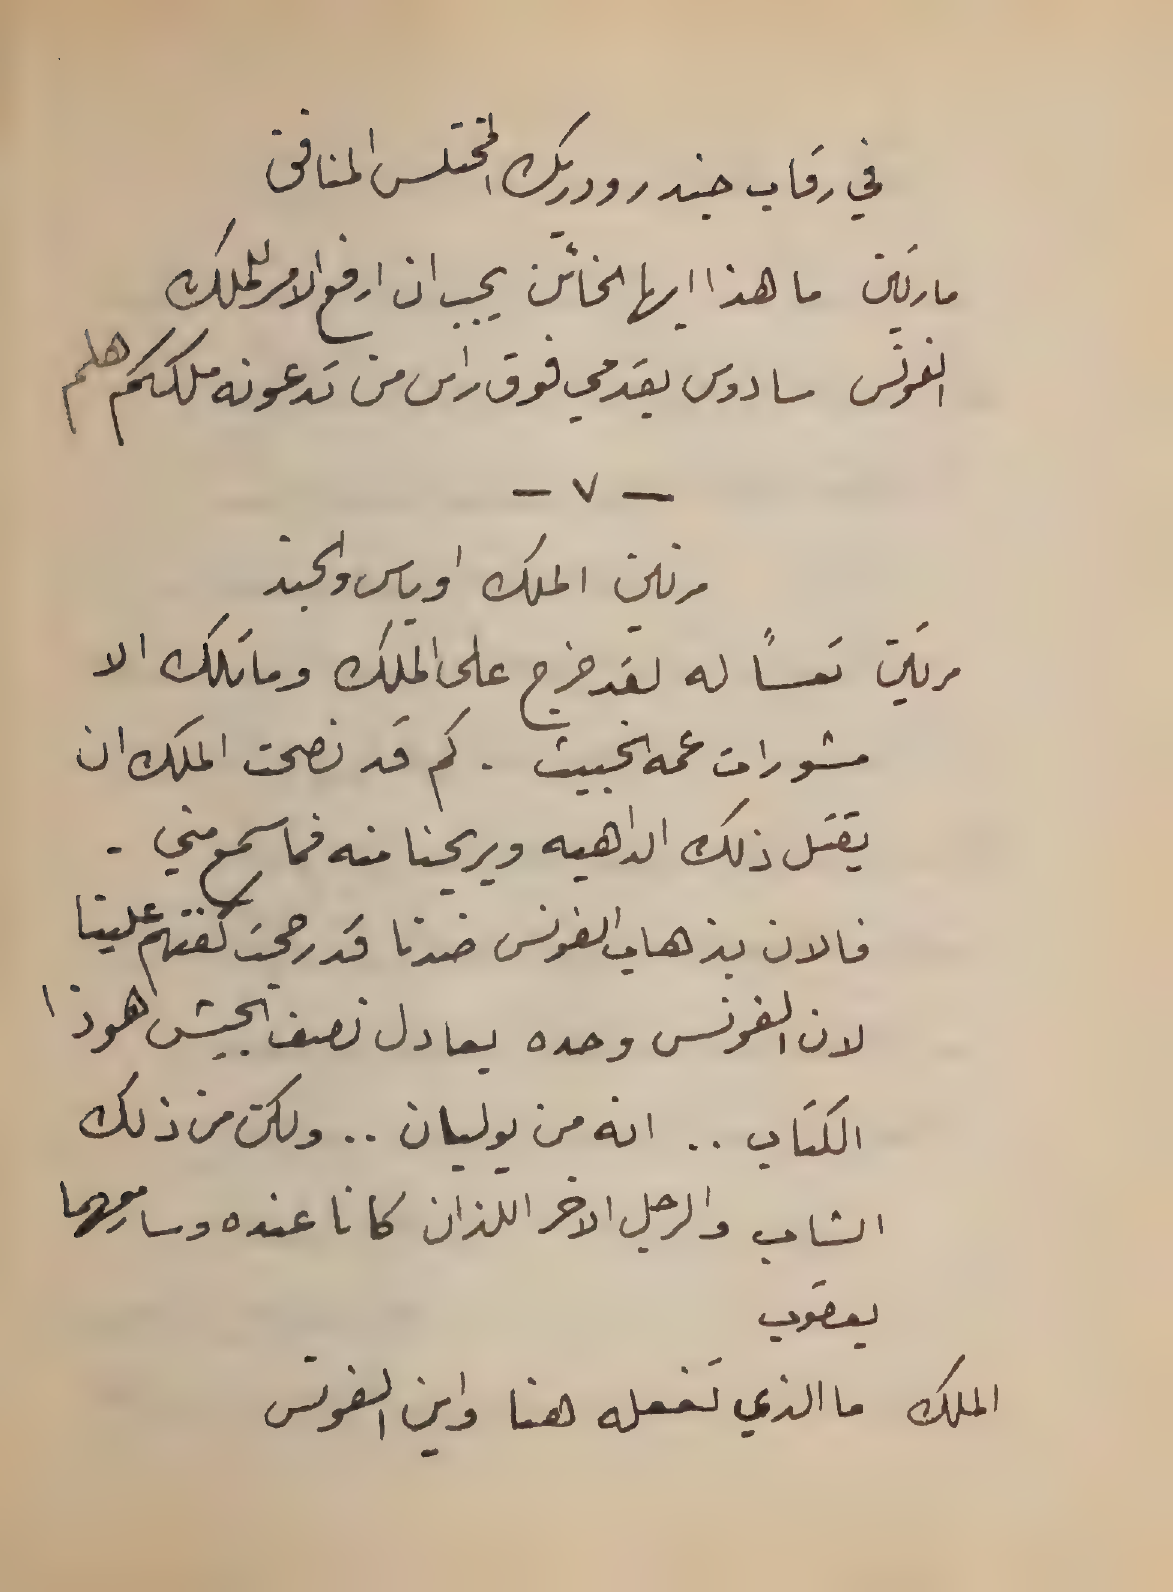 في رقاب جند رودريك المختلس المنافق
مارتين ما هذا ايها الخائن يجب ان ارفع الامر للملك
الفونس سادوس بقدمي فوق راس من تدعونه ملككم هلم
– ٧ –
مرتين الملك اوباس والجند
مرتين تعساً له لقد خرج على الملك وما تلك الا
مشورات عمه الخبيث . كم قد نصحت الملك ان
يقتل ذلك الداهيه ويريحنا منه فما سمع مني .
فالان بذهاب الفونس ضدنا قد رجحت كفتهم علينا
لان الفونس وحده يعادل نصف الجيش هوذا
الكتاب .. انه من يوليان .. ولكن من ذلك
الشاب والرجل الاخر اللذان كانا عنده وسار معهما
يعقوب
الملك ما الذي تفعله هنا واين الفونس